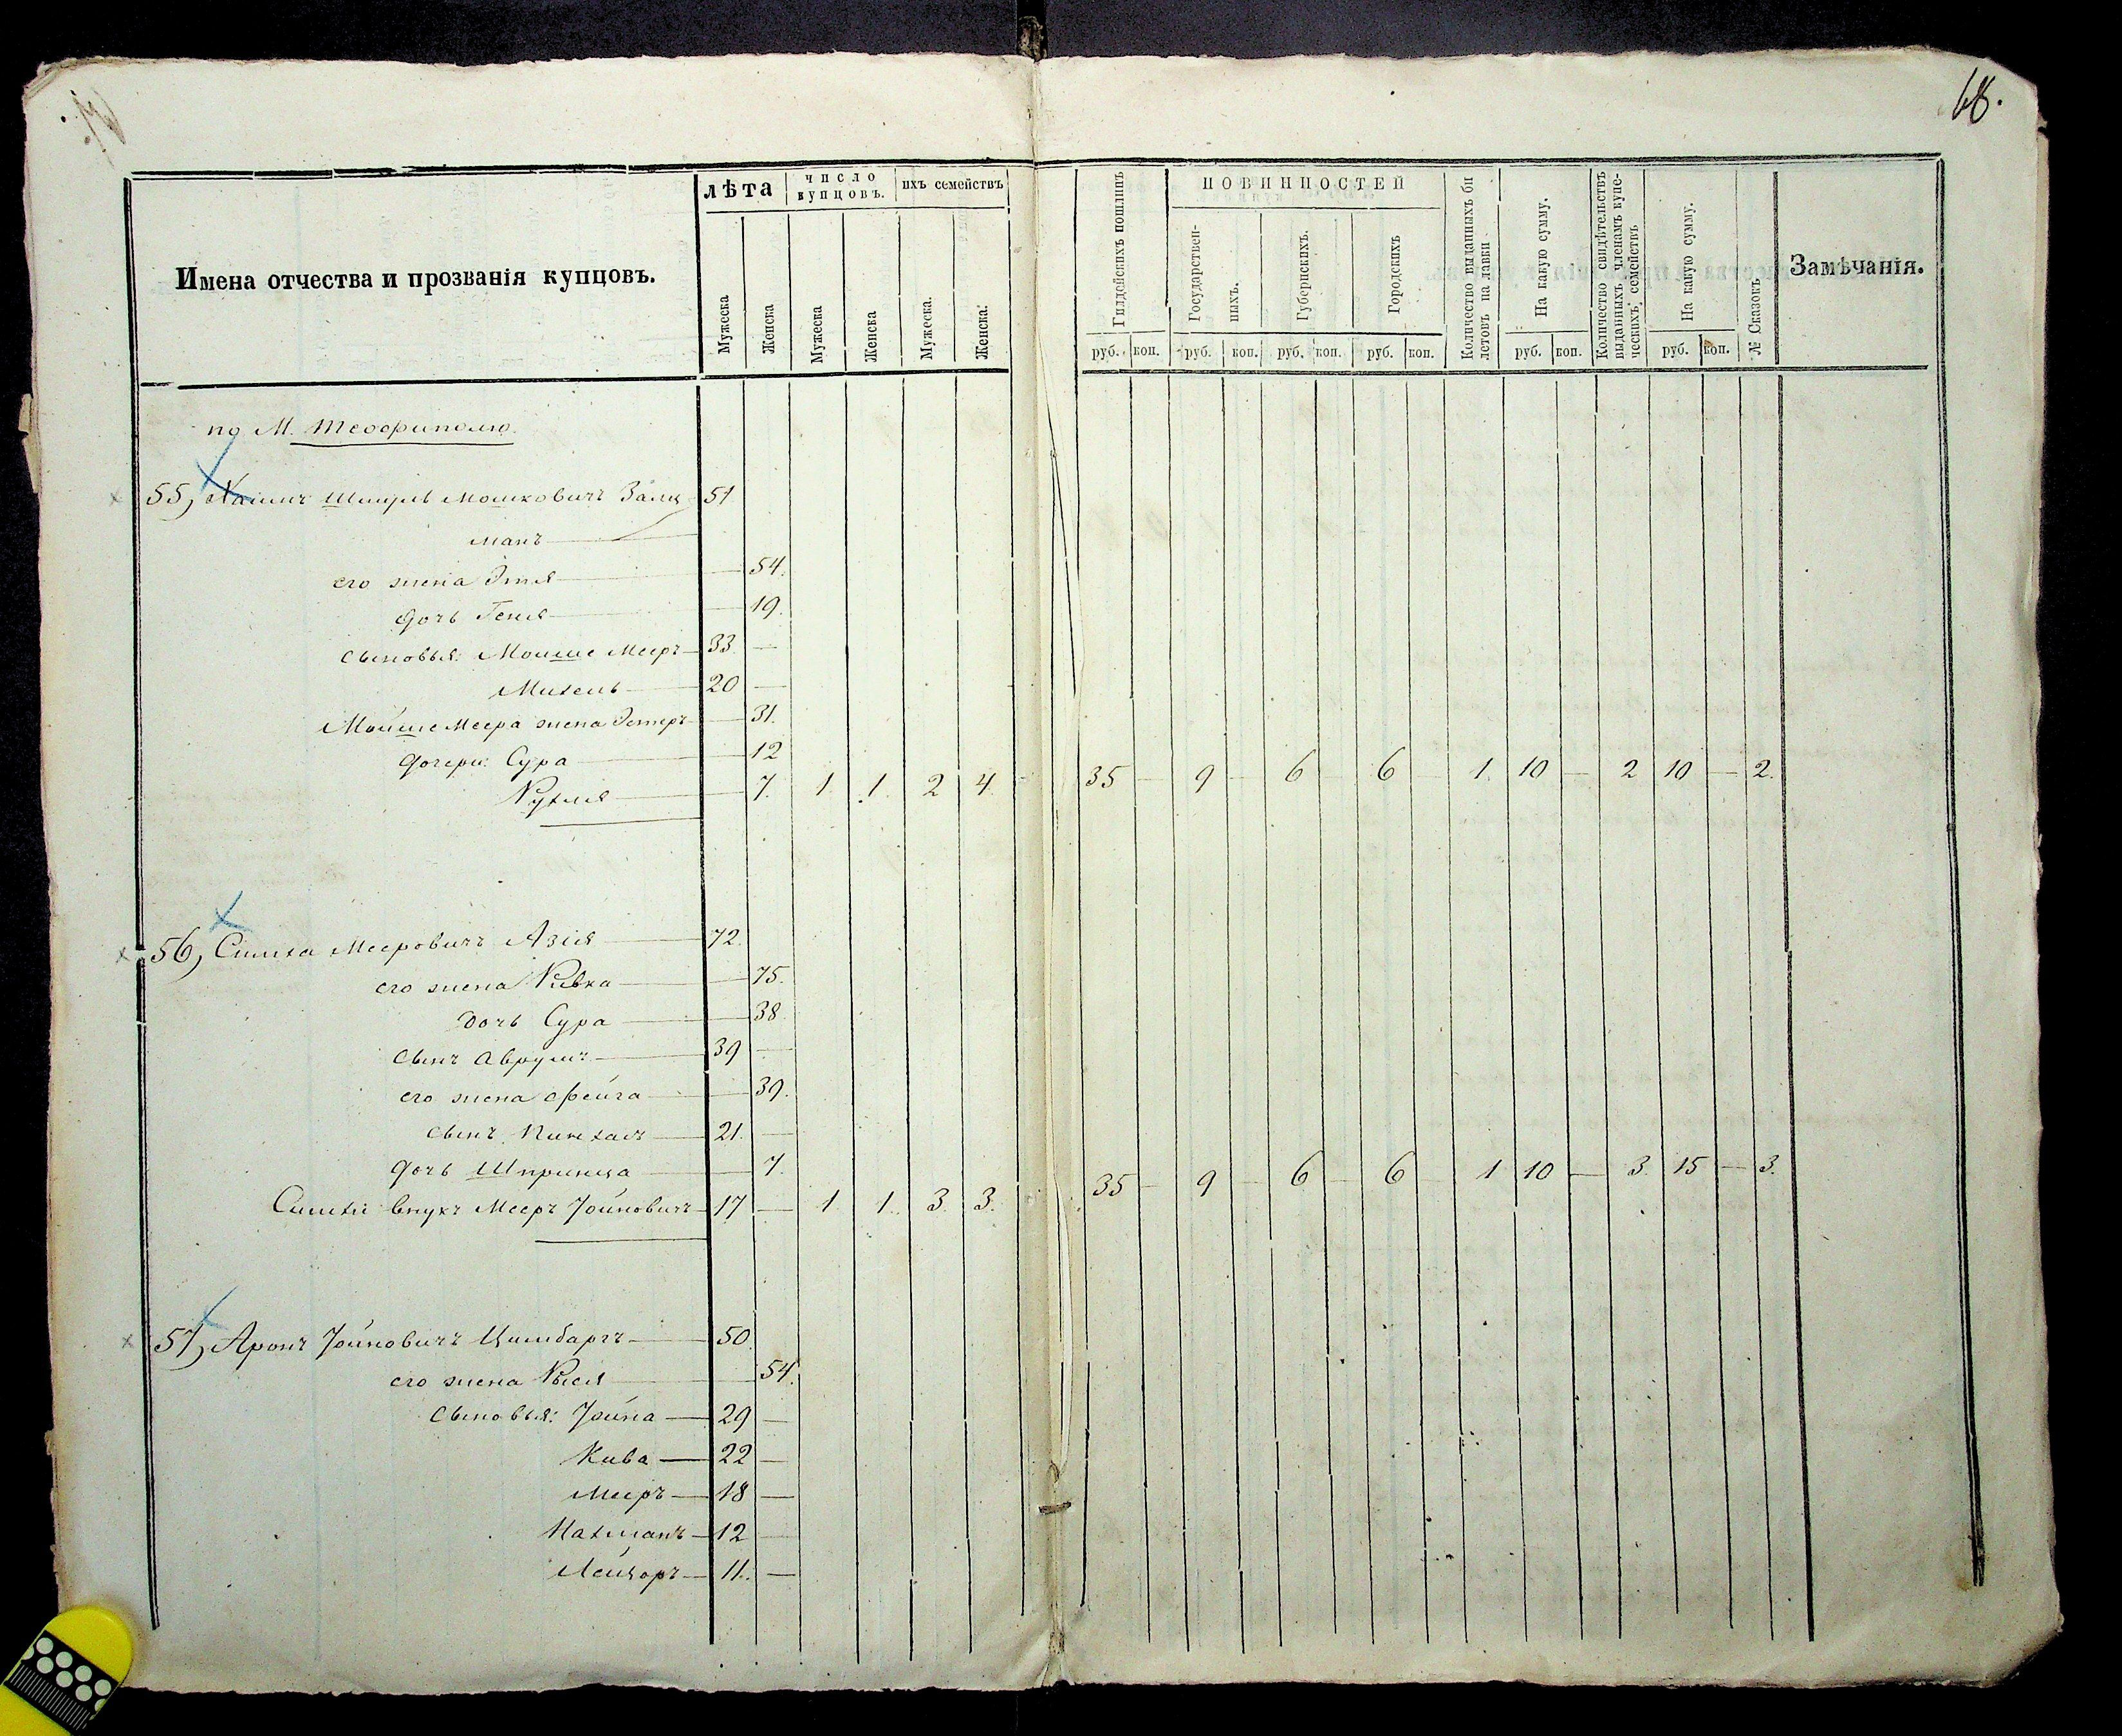 68.
Имена отчества и прозванія купцовъ.
лѣта
Мужеска
Женска
число купцовъ.
Мужеска
Женска
ихъ семействъ
Мужеска.
Женска.
Гилдейскихъ пошлинъ
руб. коп.
ПОВИННОСТЕЙ
Государствен-
ныхъ.
руб. коп.
Губернскихъ.
руб. коп.
Городскихъ
руб. коп.
Количество выданныхъ би
летовъ на лавки
На какую сумму.
руб. коп.
Количество свидѣтельствъ
выданныхъ членамъ купе-
ческихъ семействъ
На какую сумму.
руб. коп.
№ Сказокъ
Замѣчанія.
по М. Теофиполю.
55, Хаимъ Шмуль Мошковичъ Залц 51
манъ
его жена Этля 54.
дочь Геня 19.
сыновья: Мошше Мееръ 33 —
Михель 20 —
Мойше Меера жена Эстеръ 31.
дочери: Сура 12
Рухля 7. 1. 1. 2 4. 35 — 9 — 6 6 1. 10 — 2 10 — 2.
56, Симха Мееровичъ Азія 72.
его жена Ривка 75.
дочь Сура 38
сынъ Аврумъ 39 —
его жена Фейга 39.
сынъ Пинхасъ 21. —
дочь Шпринца 7.
Симхи внукъ Мееръ Іойновичъ 17 — 1. 1. 3. 3. 35 — 9 — 6 — 6 — 1 10 — 3. 15 — 3.
57, Аронъ Іойновичъ Цимбаргъ 50.
его жена Рыся 54.
сыновья: Іойна 29 —
Кива 22 —
Мееръ 18 —
Нахманъ 12 —
Лейзоръ 11. —